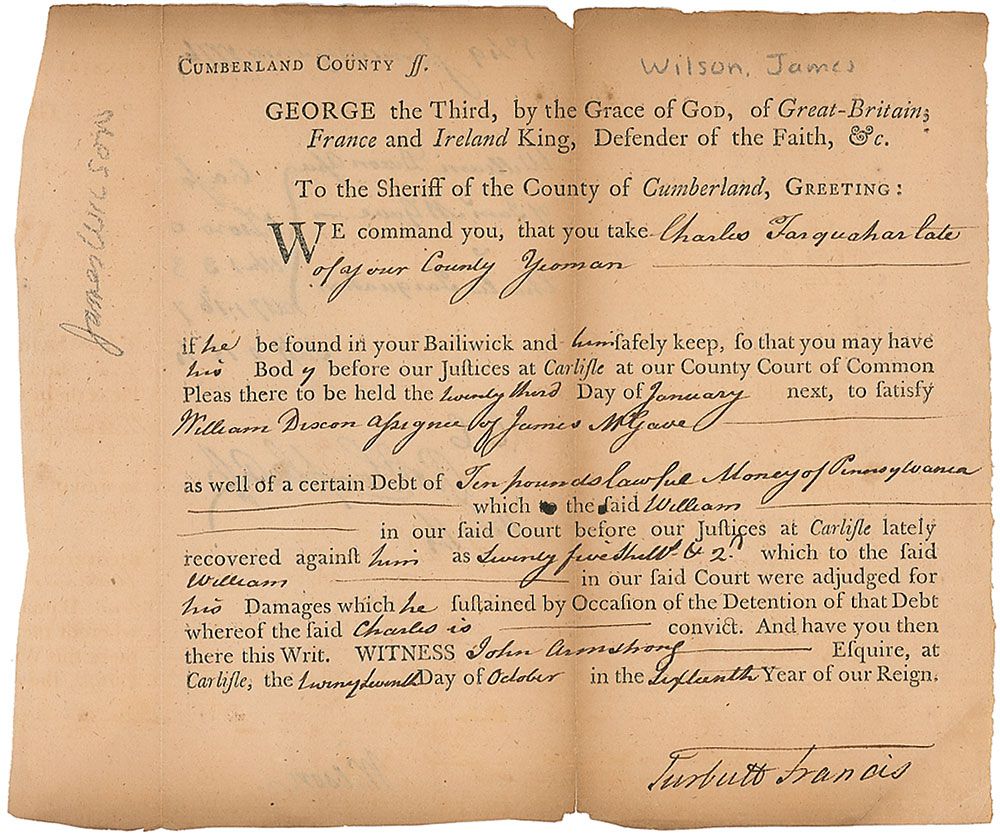 CUMBERLAND COUNTY ſſ.
Wilson, James
James Wilson
GEORGE the Third, by the Grace of GOD, of Great-Britain,
France and Ireland King, Defender of the Faith, &c.
To the Sheriff of the County of Cumberland, GREETING:
WE command you, that you take Charles Farquahar late
of your County Yeoman
if he be found in your Bailiwick and him ſafely keep, ſo that you may have
his Body before our Juſtices at Carliſle at our County Court of Common
Pleas there to be held the twenty third Day of January next, to ſatisfy
William Dixon aſsignee of James McGave
as well of a certain Debt of Ten pounds lawful Money of Pennsylvania
which to the ſaid William
in our ſaid Court before our Juſtices at Carliſle lately
recovered againſt him as Twenty five Shills. & 2d. which to the ſaid
William in our ſaid Court were adjudged for
his Damages which he ſuſtained by Occaſion of the Detention of that Debt
whereof the ſaid Charles is convict. And have you then
there this Writ. WITNESS John Armstrong Eſquire, at
Carliſle, the Day of October in the Sixteenth Year of our Reign.
Turbutt Francis